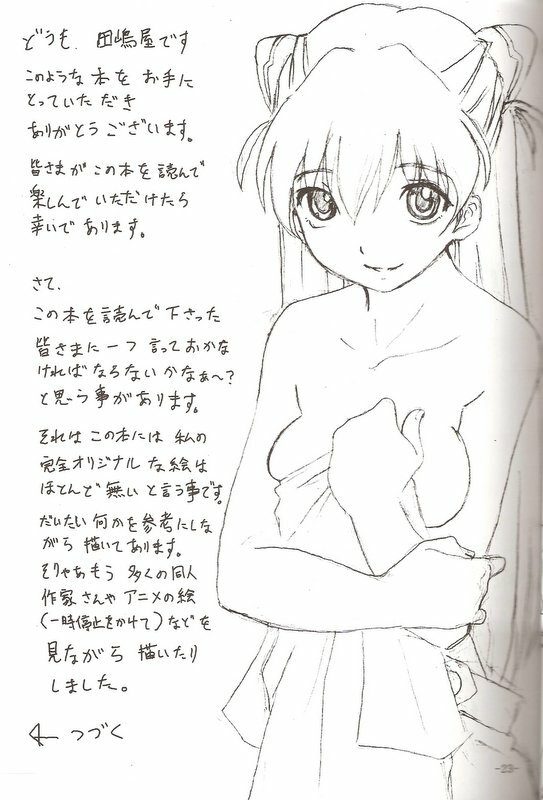 どうも、田嶋屋です
このような本を お手に
とっていただき
ありがとうございます。
皆さまがこの本を読んで
楽しんでいただけたら
幸いであります。
さて、
この本を読んで下さった
皆さまに一つ言っておかな
ければならないかなぁ〜?
と思う事があります。
それはこの本には 私の
完全オリジナルな絵は
ほとんど無いと言う事です。
だいたい何かを参考にしな
がら 描いてあります。
そりゃあもう 多くの同人
作家さんや アニメの絵
(一時停止をかけて)などを
見ながら 描いたり
しました。
← つづく
-23-